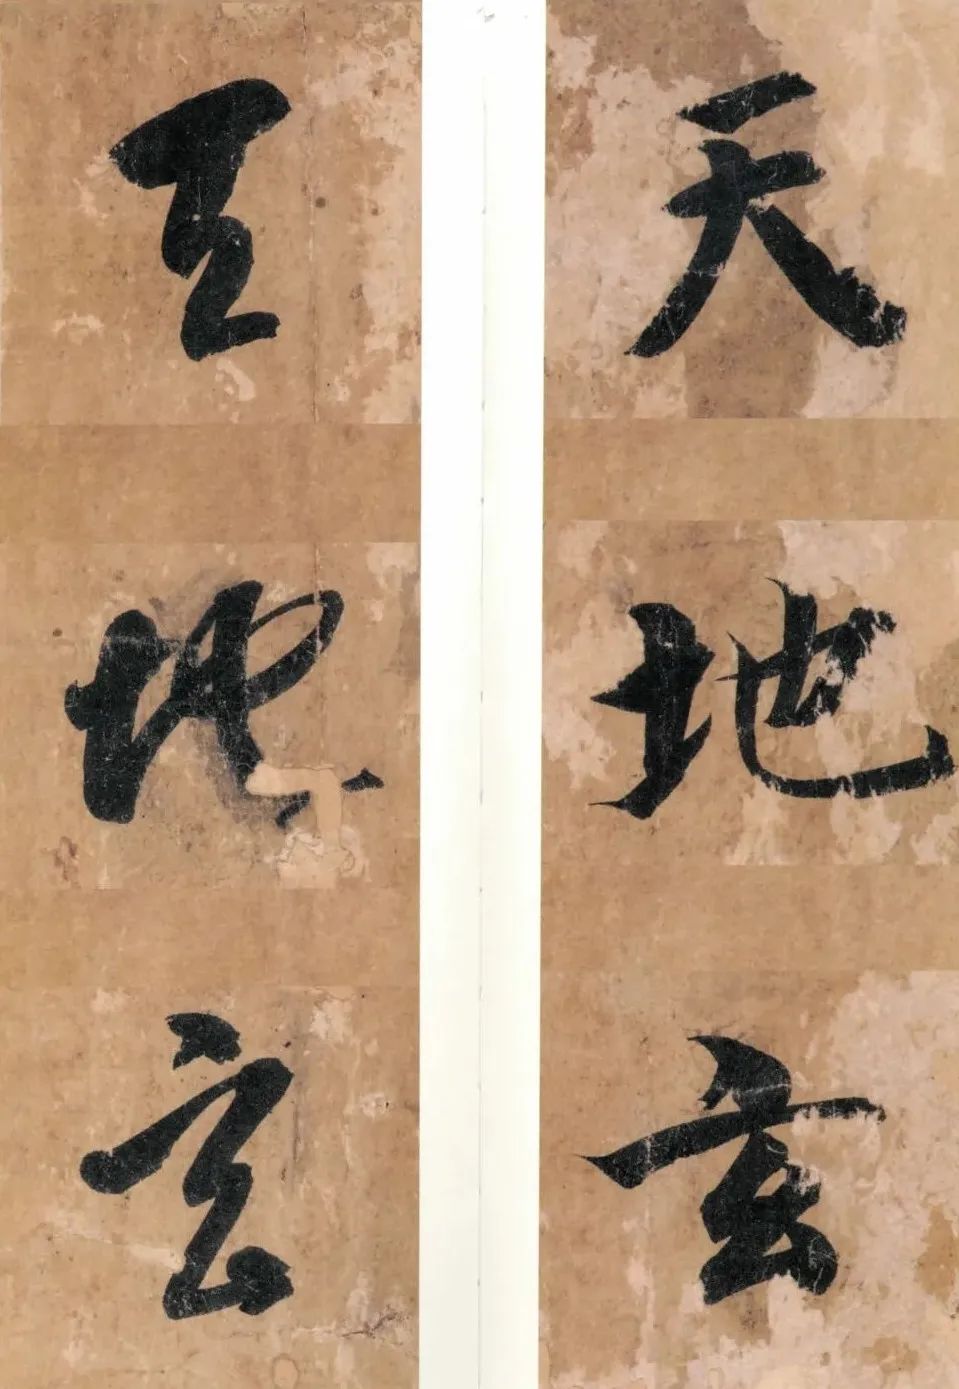 天地玄
天地玄